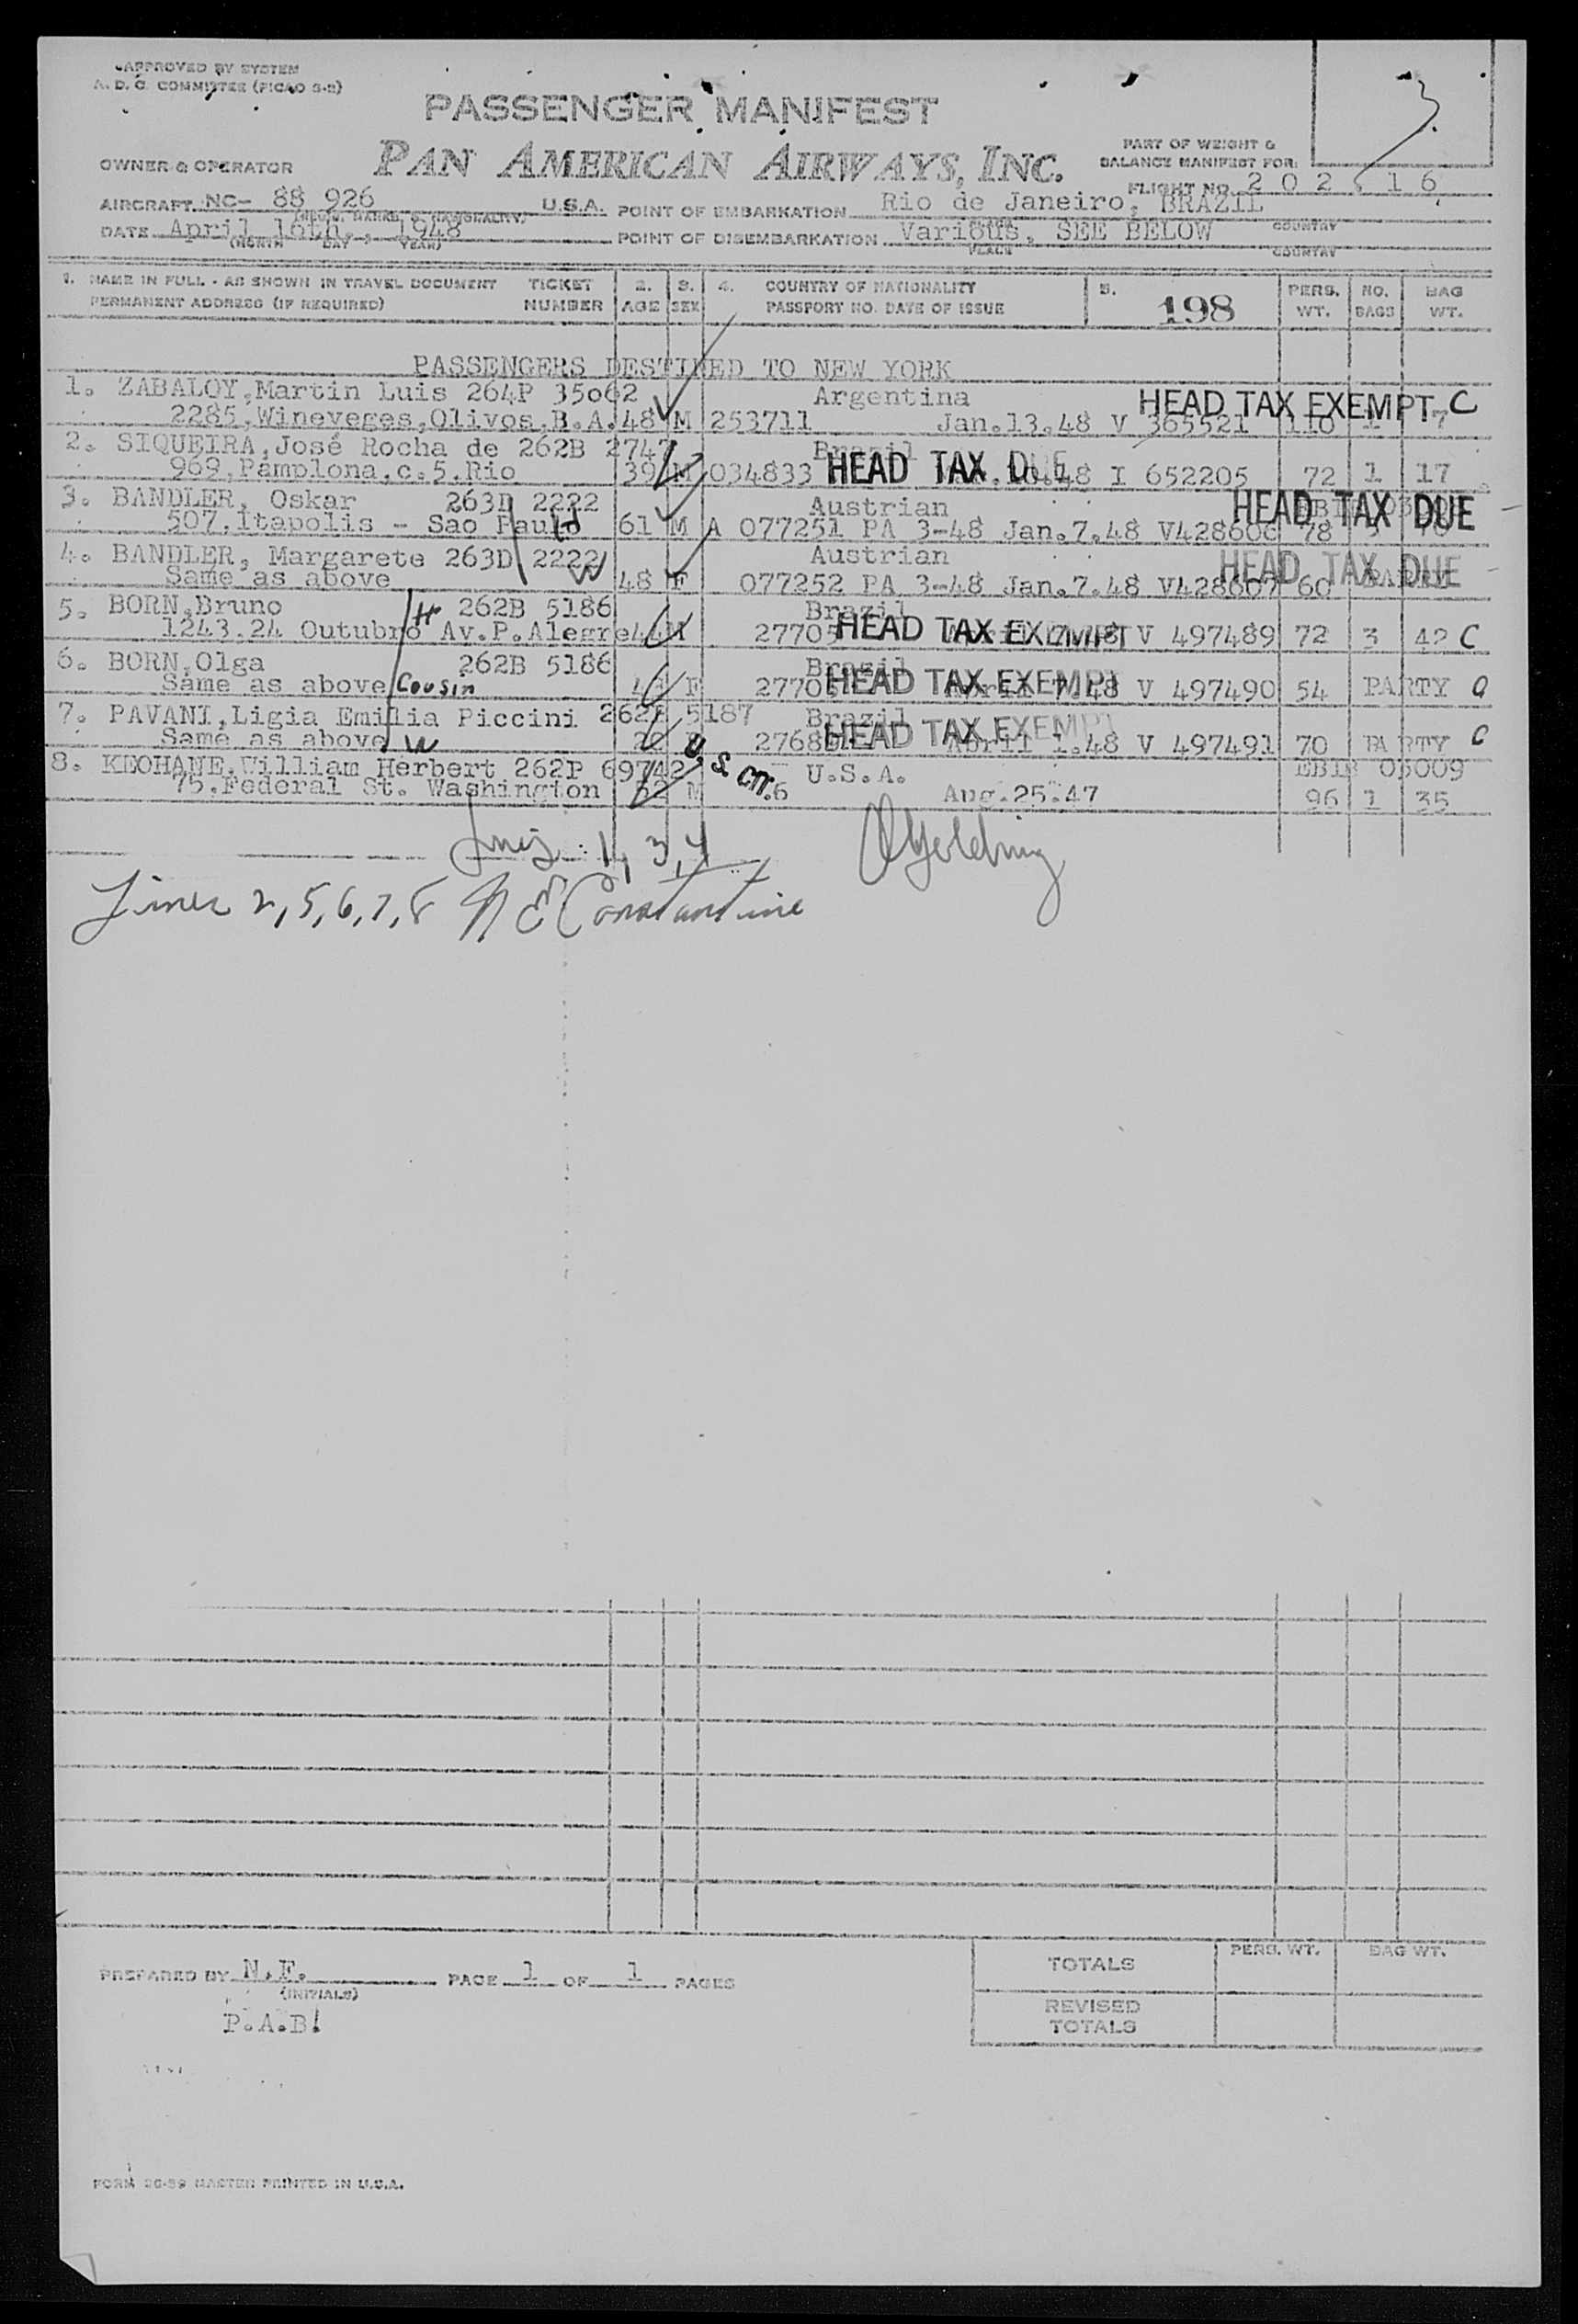 APPROVED BY SYSTEM
A. D. C. COMMITTEE (PICAO S-2)
3
PASSENGER MANIFEST
PAN AMERICAN AIRWAYS, INC.
OWNER & OPERATOR
PART OF WEIGHT &
BALANCE MANIFEST FOR:
FLIGHT NO. 202 . 16
AIRCRAFT NC- 88 926 U.S.A. POINT OF EMBARKATION Rio de Janeiro, BRAZIL
PLACE COUNTRY
DATE April 16th, 1948 POINT OF DISEMBARKATION Various, SEE BELOW
(MONTH DAY YEAR) PLACE COUNTRY
1. NAME IN FULL - AS SHOWN IN TRAVEL DOCUMENT TICKET 2. 3. 4. COUNTRY OF NATIONALITY 5. PERS. NO. BAG
PERMANENT ADDRESS (IF REQUIRED) NUMBER AGE SEX PASSPORT NO. DATE OF ISSUE 198 WT. BAGS WT.
PASSENGERS DESTINED TO NEW YORK
1. ZABALOY,Martin Luis 264P 35062 Argentina HEAD TAX EXEMPT C
2285,Wineveges,Olivos,B.A. 48 M 253711 Jan.13.48 V 365521 110 1 7
2. SIQUEIRA,José Rocha de 262B 2747 Brazil HEAD TAX DUE
969,Pamplona,c.5,Rio 39 M 034833 .48 I 652205 72 1 17
3. BANDLER, Oskar 263D 2222 Austrian HEAD TAX DUE
507,Itapolis - Sao Paulo H 61 M A 077251 PA 3-48 Jan.7.48 V428606 78
4. BANDLER, Margarete 263D 2222 W Austrian HEAD TAX DUE
Same as above 48 F 077252 PA 3-48 Jan.7.48 V428607 60 PARTY
5. BORN,Bruno H 262B 5186 Brazil HEAD TAX EXEMPT
1243.24 Outubro Av.P.Alegre 44 M 2770 .48 V 497489 72 3 42 C
6. BORN,Olga 262B 5186 Brazil HEAD TAX EXEMPT
Same as above Cousin F 2770 .48 V 497490 54 PARTY C
7. PAVANI,Ligia Emilia Piccini 262B 5187 Brazil HEAD TAX EXEMPT
Same as above W 22 2768 April 1.48 V 497491 70 PARTY C
8. KEOHANE,William Herbert 262P 69742 U.S. CIT. U.S.A. EBIR 03009
75,Federal St. Washington 52 M .6 Aug.25.47 96 1 35
Lines : 1, 3, 4 Golding
Lines 2, 5, 6, 7, 8 N E Constantine
PREPARED BY N.F. PAGE 1 OF 1 PAGES
(INITIALS)
P.A.B!
TOTALS PERS. WT. BAG WT.
REVISED
TOTALS
FORM 26-59 MASTER PRINTED IN U.S.A.